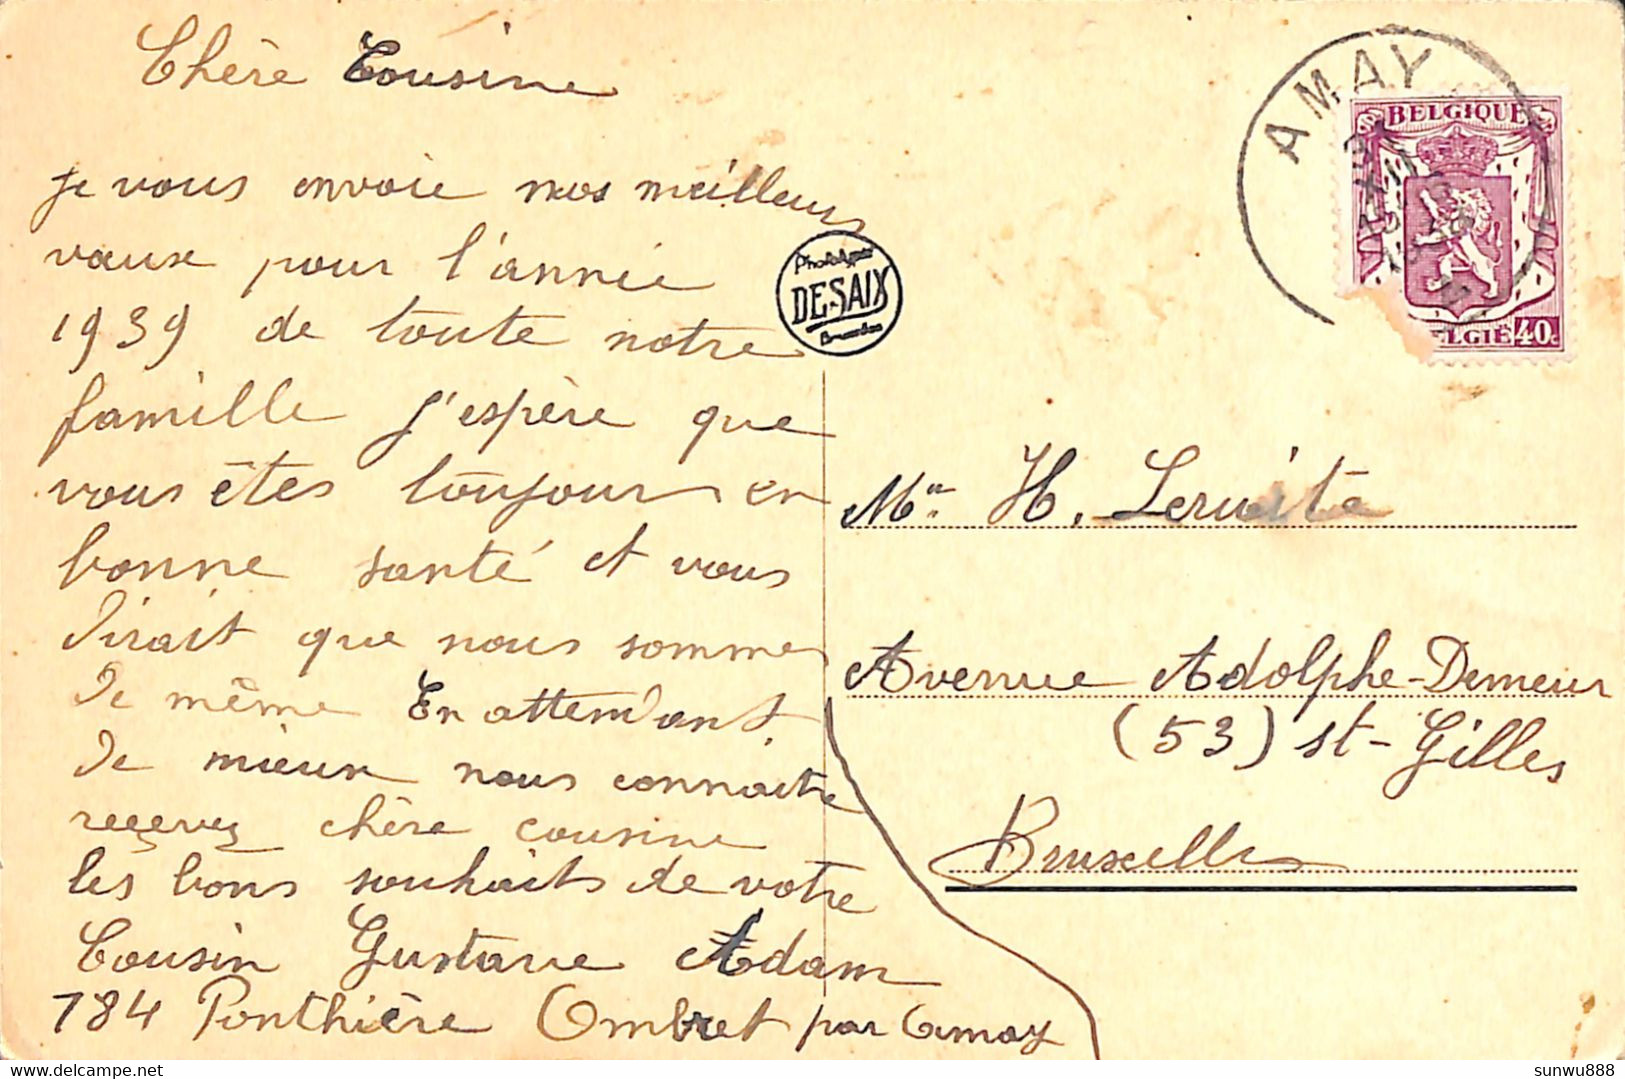 Chère Cousine
je vous envoie nos meilleurs
vœux pour l'année
1939 de toute notre
famille j'espère que
vous êtes toujours en
bonne santé et vous
dirait que nous somme
de même En attendant
de mieux nous connaitre
reçevez chère cousine
les bons souhaits de votre
Cousin Gustave Adam
784 Ponthière Ombret par Amay
Phototypie
DESAIX
Bruxelles
AMAY
BELGIQUE
BELGIË 40c
H. Leruite
Avenue Adolphe-Demeur
(53) st-Gilles
Bruxelles
delcampe.net
sunwu888